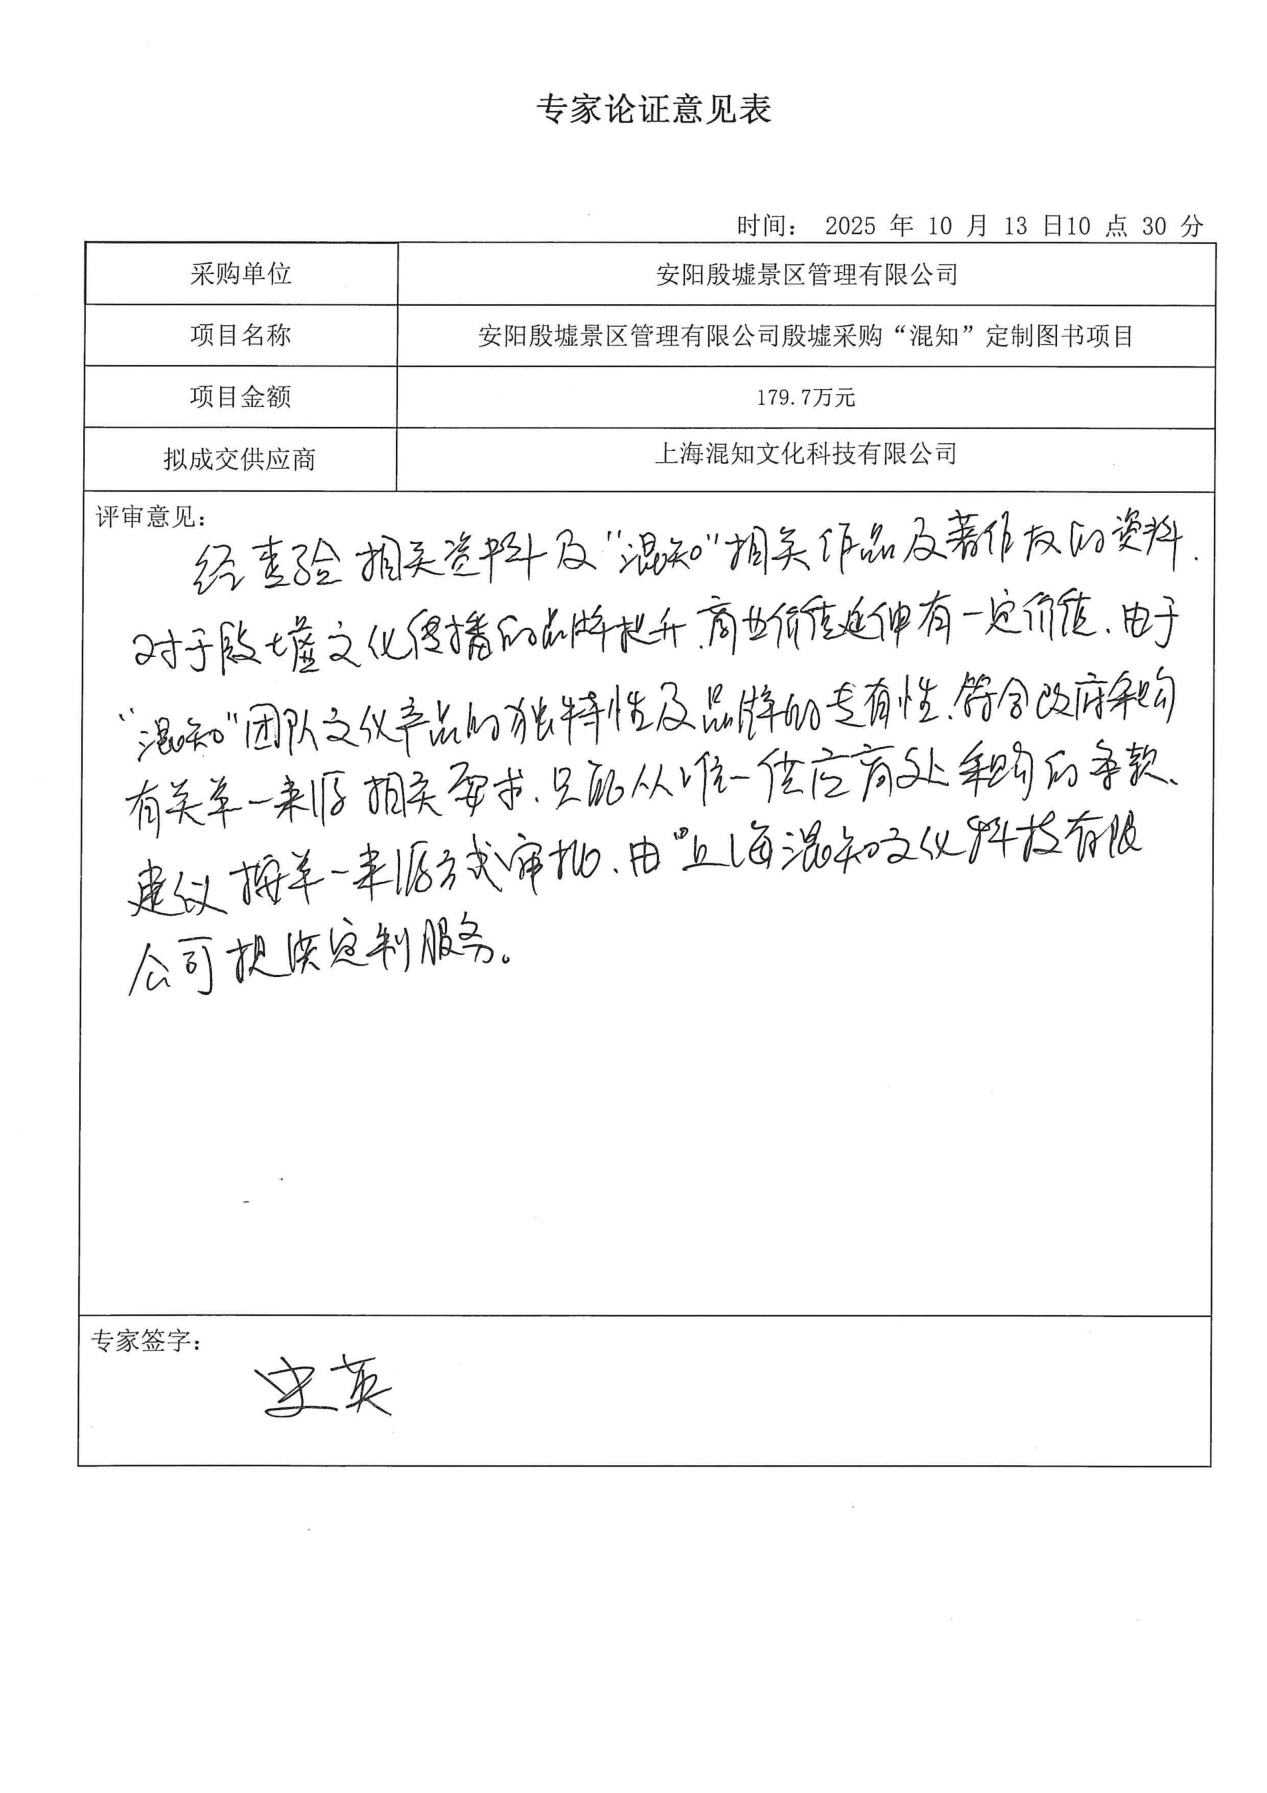 专家论证意见表
时间： 2025 年 10 月 13 日10 点 30 分
采购单位 安阳殷墟景区管理有限公司
项目名称 安阳殷墟景区管理有限公司殷墟采购“混知”定制图书项目
项目金额 179.7万元
拟成交供应商 上海混知文化科技有限公司
评审意见：
经查验相关资料及“混知”相关作品及著作权的资料，
对于殷墟文化传播的品牌提升、商业价值延伸有一定价值、由于
“混知”团队文化产品的独特性及品牌的专有性、符合政府采购
有关单一来源相关要求、只能从唯一供应商处采购的条款、
建议按单一来源方式审批、由“上海混知文化科技有限
公司提供定制服务。
专家签字：
史英